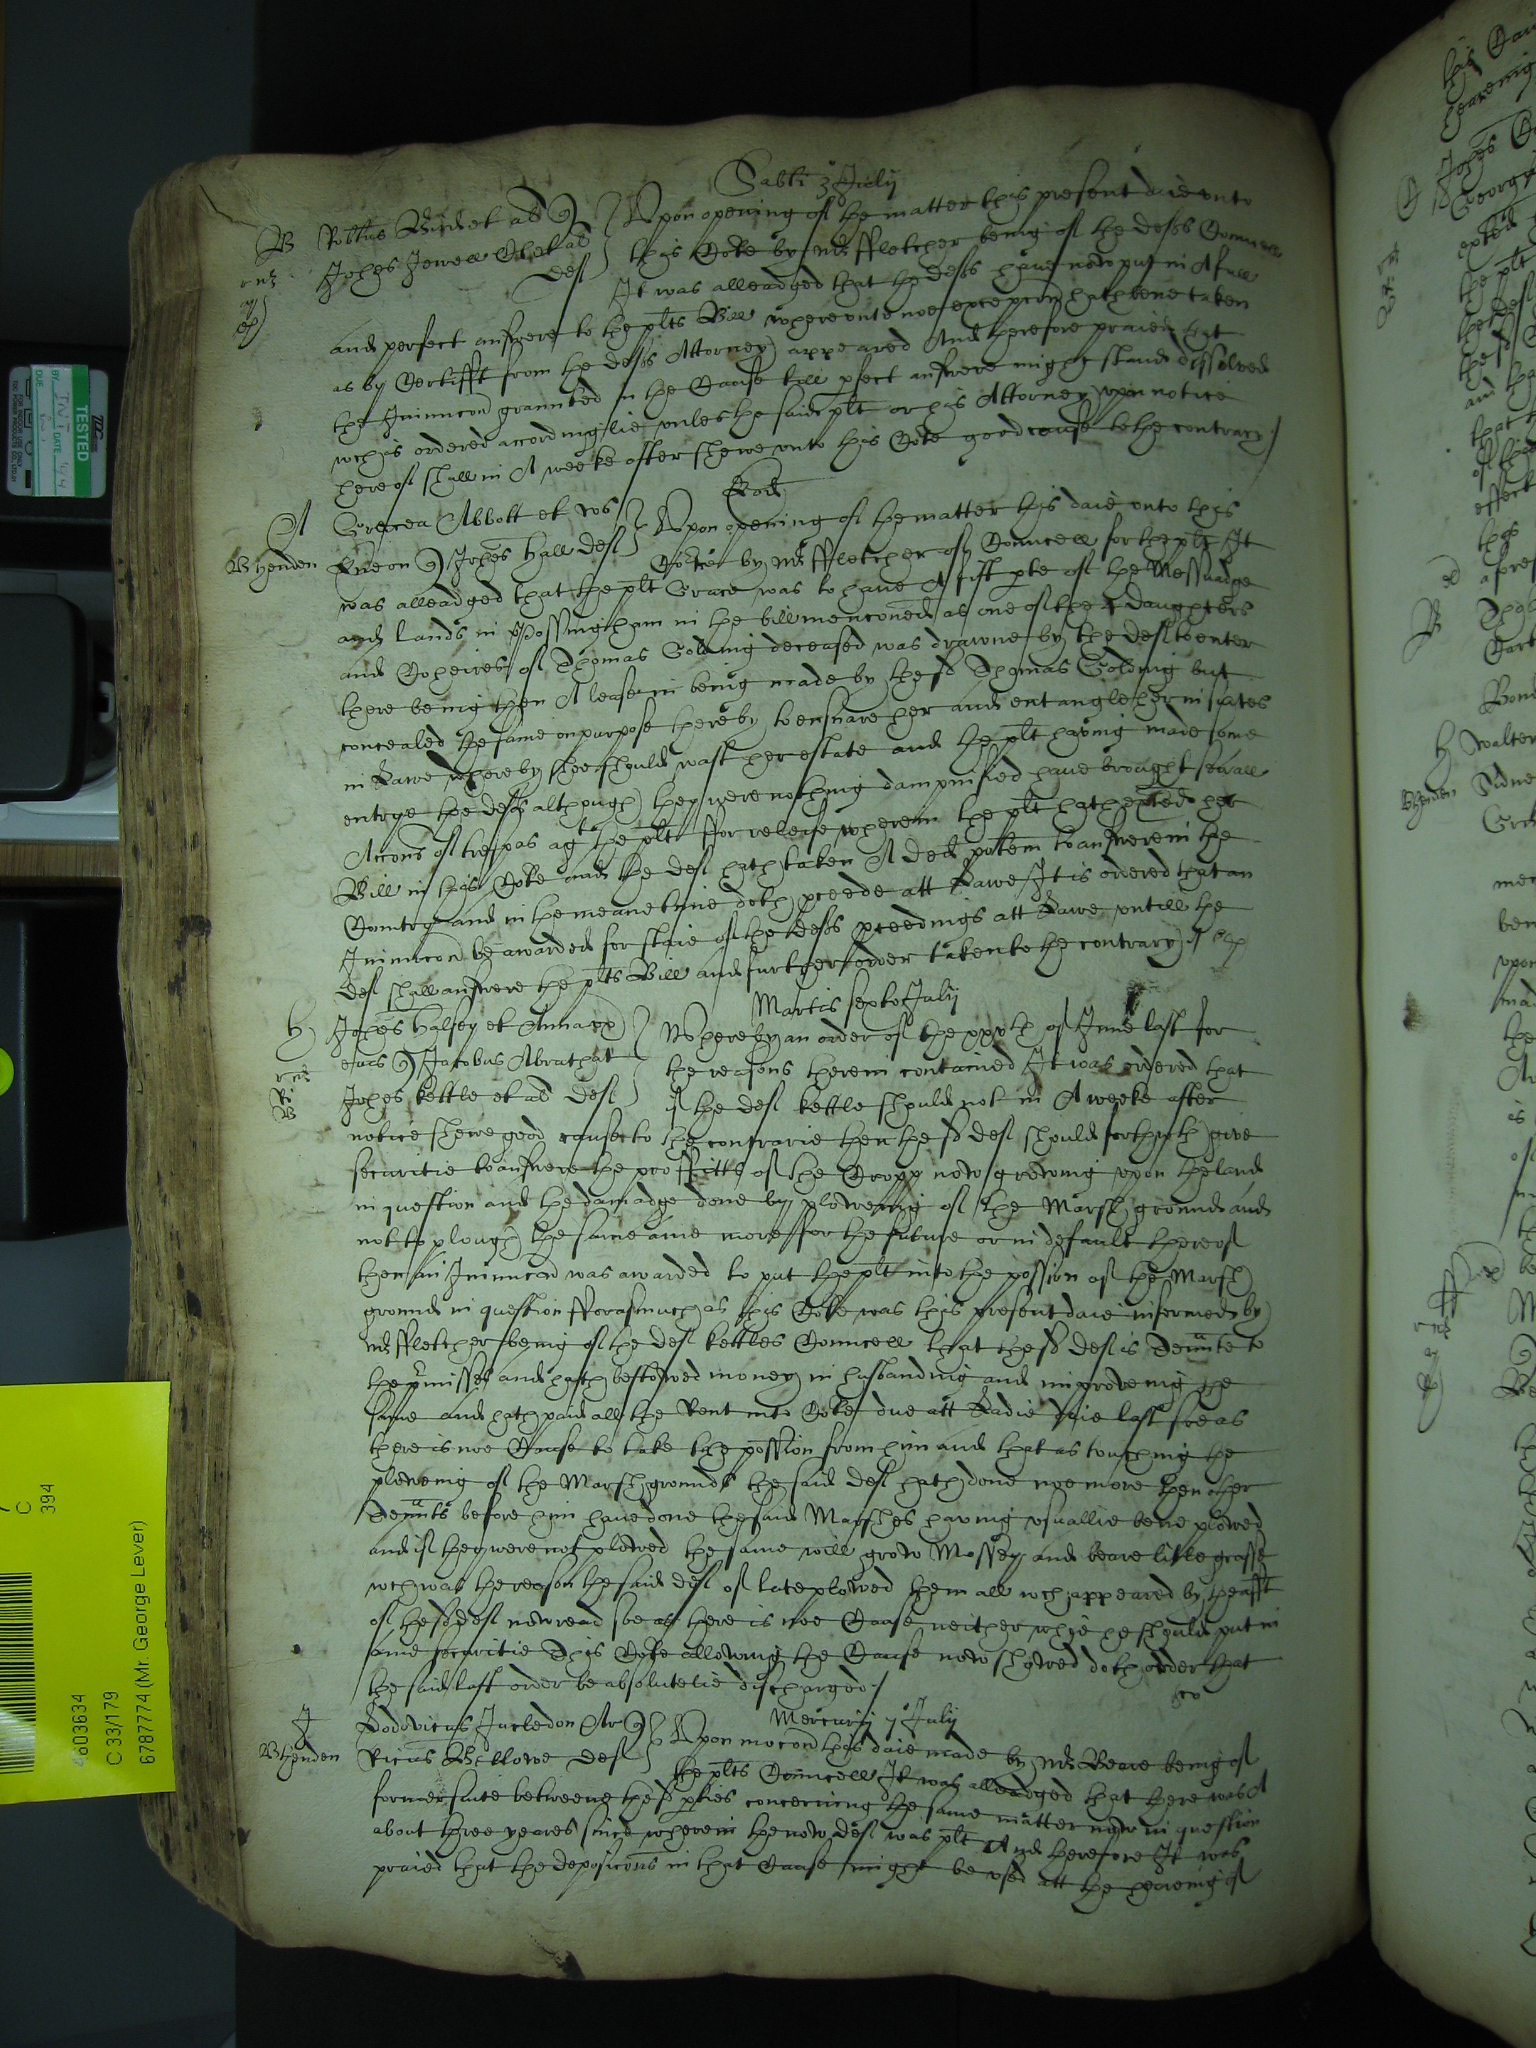 Sabti 3 July
B Robtus Bird et al q
Johes Jewell Ch et al
def
Upon opening of the matter this present daie unto
this Cote by Mr Fletcher being of the defts Councell
It was alleadged that the defts have now put in A full
and perfect answere to the plts Bill whereunto noe excepcon hath bene taken
as by Certifft from the defts Attorney appeared And therefore praied that
the Iniunccon graunted in the Cause till pfect answere might stand dissolved
wch is ordered accordinglie unles the said plt or his Attorney upon notice
hereof shall in A weeke after shewe unto this Cote good cause to the contrary /
Eod
A Gracea Abbott et
Henden q Johes Hall def
Upon opening of the matter this daie unto this
Cote by Mr Fletcher of Councell for the plt It
was alleadged that the plt Grace was to have A fift pte of the Messuadge
and lands in Possingham in the bill menconed as one of the daughters
and Coheires of Thomas Golding deceased was drawne by the def to enter
there being then A lease in being made by the sd Thomas Golding but
concealed the same on purpose thereby to ensnare her and entangle her in suites
in Lawe whereby shee should wast her estate and the plt having made some
entrye the defts although they were nothing dampnified have brought seuall
Accons of trespas agt the plt ffor releife wherein the plt hath exted her
Bill in this Cote and the def hath taken A Ded potem to answere in the
Countrey and in the meane time doth pceede att Lawe It is ordered that an
Iniunccon be awarded for staie of the defts pceedings att Lawe untill the
def shall answere the plts Bill and further order taken to the contrary /
Martis sexto July
H Johes Halsey et Anna
eius q Jacobus Abrathat
Johes kettle et al def
Whereby an order of the xxvth of June last for
the reasons therein contained It was ordered that
if the def kettle should not in A weeke after
notice shewe good cause to the contrarie then the sd def should forthwth give
securitie to answere the proffitts of the Cropp now growing upon the land
in question and the damadge done by plowenig of the Marsh ground and
not to plough the same anie more for the future or in default thereof
then an Iniunccon was awarded to put the plt into the possion of the Marsh
ground in question fforasmuch as this Cote was this present daie informed by
Mr Fletcher being of the def kettles Councell that the sd def is Tennte to
the pmisses and hath bestowed money in husbanding and improveing the
same and hath paid all the Rent into Cote due att Ladie daie last soe as
there is noe Cause to take the possion from him and that as touching the
plowenig of the Marsh grounds the said def hath done noe more then other
Tennts before him have done the said Marshes having usuallie bene plowed
and if they were not plowed the same will grow Mossey and beare litle grasse
wch was the reason the said def of late plowed them all wch appeared by the afft
of the sd def now read soe as there is noe Cause neither whie he should put in
anie securitie This Cote allowing the Cause now shewed doth order that
the said last order be absolutelie discharged /
Mercurij 7 July
J Lodovicus Incledon Ar q
Henden Ricus Bellowe def
Upon mocon this daie made by Mr Beare being of
the plts Councell It was alleadged that there was A
former suite betweene the sd pties concerning the same matter now in question
about three yeares since wherein the now def was plt And therefore It was
praied that the deposicons in that Cause might be used att the heareing of
TESTED
DATE
DUE
4603634
C 33/179
6787774 (Mr. George Lever)
C
394